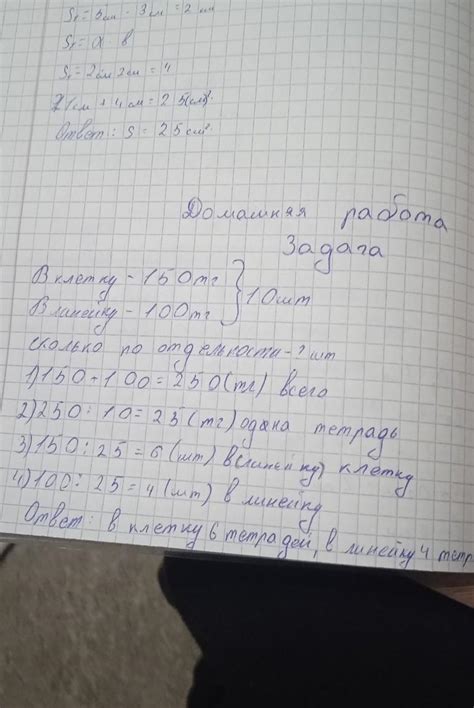 S₁= 5см - 3см = 2 см
S₁= a в
S₁= 2см 2см = 4
21см + 4см = 25(см²)
Ответ: S = 25 см²
Домашняя работа
Задача
В клетку - 150тг } 10шт
В линейку - 100тг
сколько по отдельности - ? шт
1) 150 + 100 = 250 (тг) всего
2) 250 : 10 = 25 (тг) одана тетрадь
3) 150 : 25 = 6 (шт) в (линейку) клетку
4) 100 : 25 = 4 (шт) в линейку
Ответ: в клетку 6 тетрадей, в линейку 4 тетр